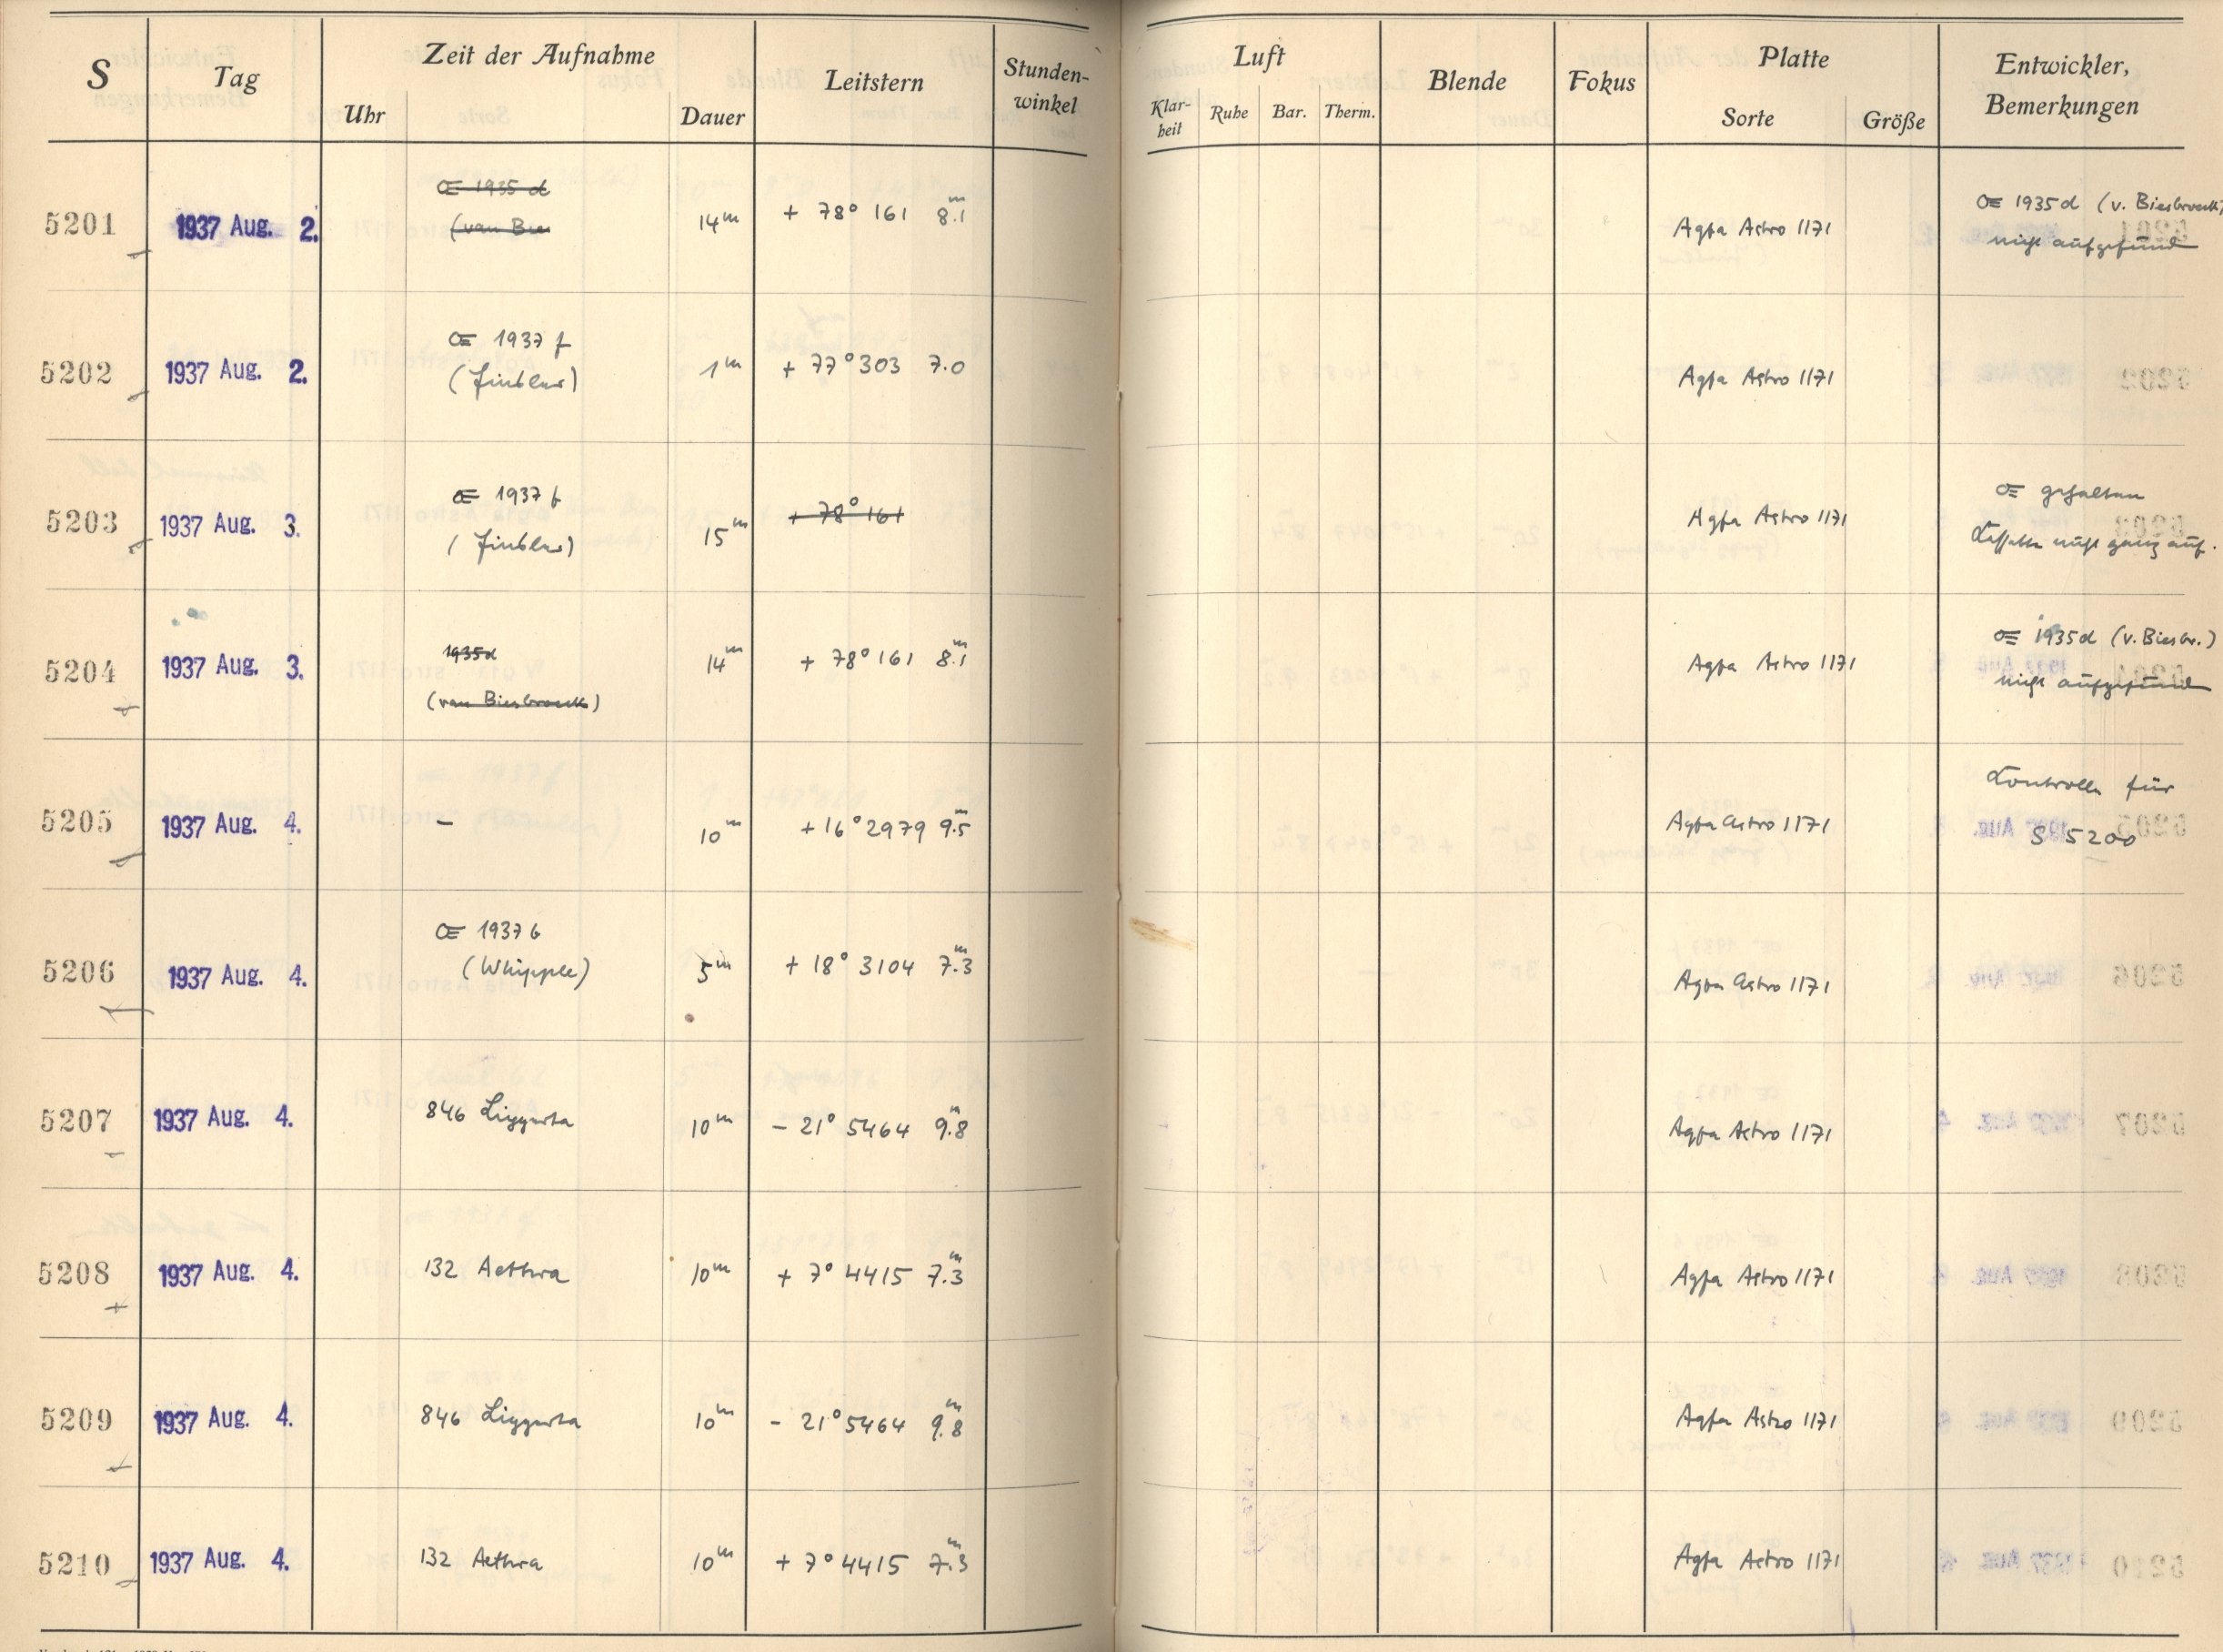 S Tag Zeit der Aufnahme Leitstern Stunden-winkel Luft Blende Fokus Platte Entwickler, Bemerkungen
Uhr Dauer Klar-heit Ruhe Bar. Therm. Sorte Größe
☄ 1935 d
(van Bie
5201 1937 Aug. 2. 14ᵐ + 78° 161 8.1ᵐ Agfa Astro 1171 ☄ 1935 d (v. Biesbroeck)
nicht aufgefund
☄ 1937 f
5202 1937 Aug. 2. (Finsler) 1ᵐ + 77° 303 7.0 Agfa Astro 1171
☄ 1937 f
5203 1937 Aug. 3. (Finsler) 15ᵐ + 78° 161 Agfa Astro 1171 ☄ gehalten
Kassette nicht ganz auf.
1935d
5204 1937 Aug. 3. 14ᵐ + 78° 161 8.1ᵐ Agfa Astro 1171 ☄ 1935d (v. Biesbr.)
(van Biesbroeck) nicht aufgefund
5205 1937 Aug. 4. – 10ᵐ + 16° 2979 9.5ᵐ Agfa Astro 1171 Kontrolle für
S 5200
☄ 1937 b
5206 1937 Aug. 4. (Whipple) 5ᵐ + 18° 3104 7.3ᵐ Agfa Astro 1171
5207 1937 Aug. 4. 846 Lipperta 10ᵐ – 21° 5464 9.8ᵐ Agfa Astro 1171
5208 1937 Aug. 4. 132 Aethra 10ᵐ + 7° 4415 7.3ᵐ Agfa Astro 1171
5209 1937 Aug. 4. 846 Lipperta 10ᵐ – 21° 5464 9.8ᵐ Agfa Astro 1171
5210 1937 Aug. 4. 132 Aethra 10ᵐ + 7° 4415 7.3ᵐ Agfa Astro 1171